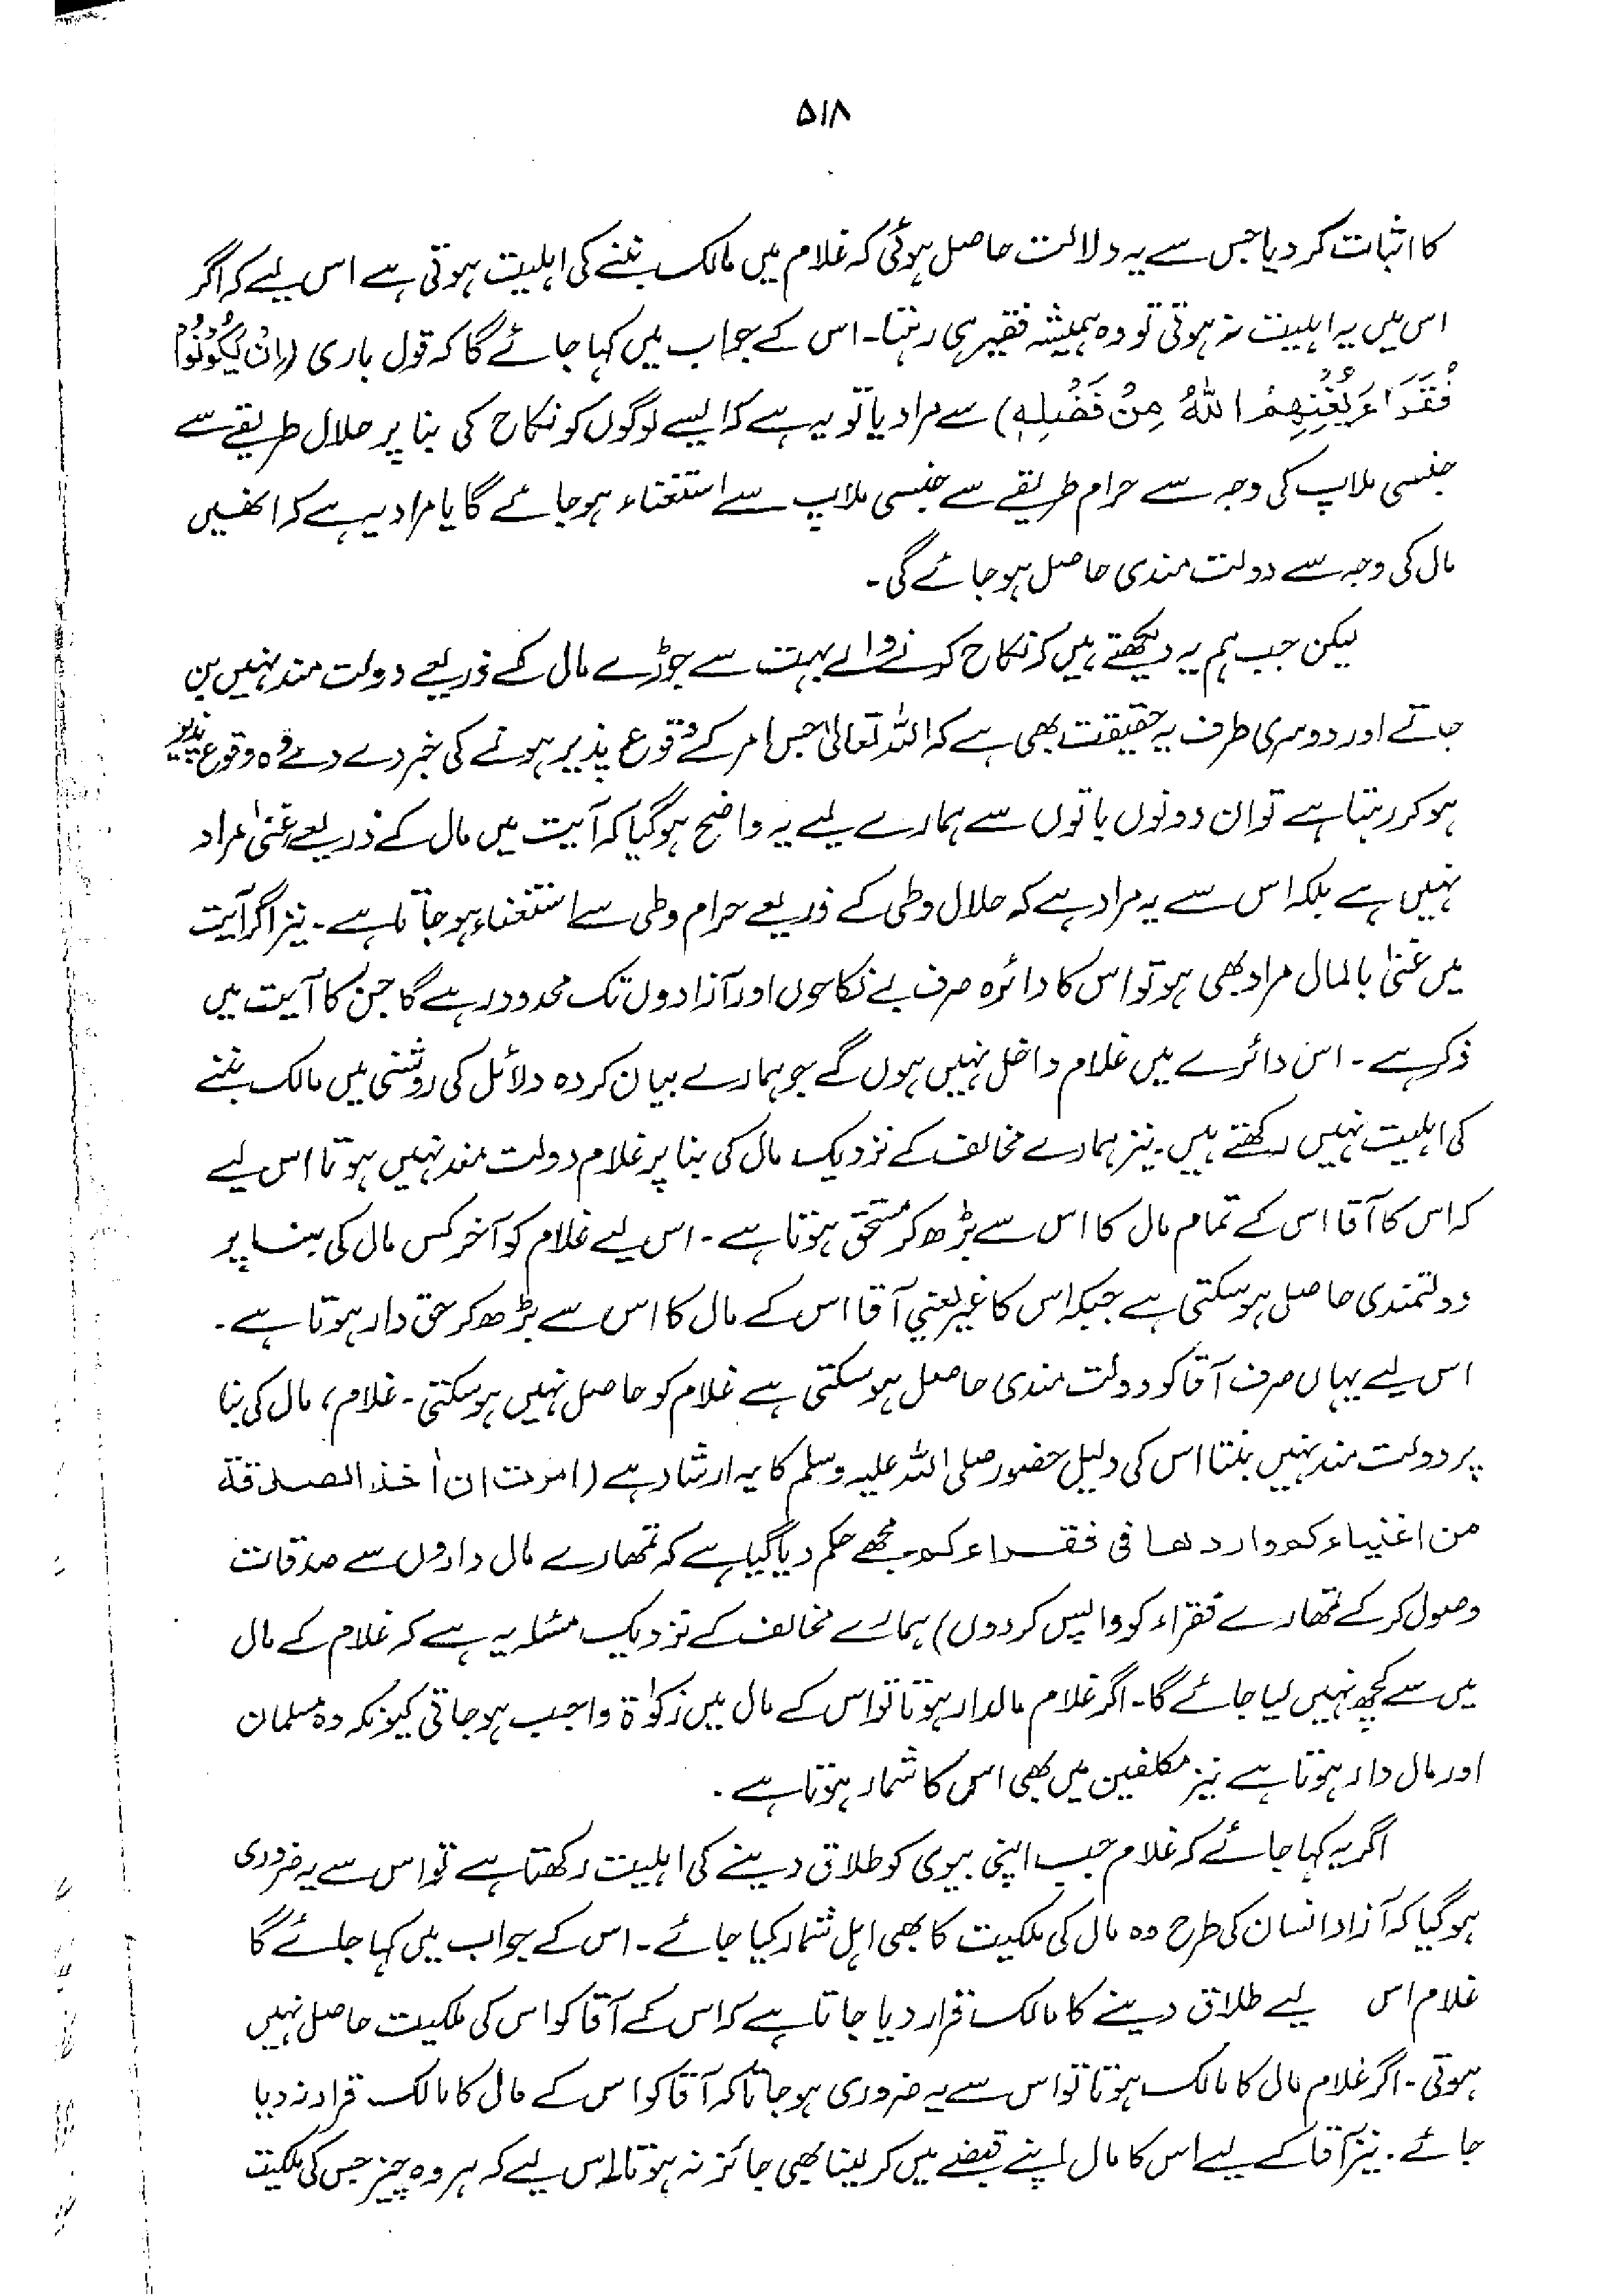 ۵۱۸
کا اثبات کر دیا جس سے یہ دلالت حاصل ہوئی کہ غلام میں مالک بننے کی اہلیت ہوتی ہے اس لیے کہ اگر
اس میں یہ اہلیت نہ ہوتی تو وہ ہمیشہ فقیر ہی رہتا۔ اس کے جواب میں کہا جائے گا کہ قول باری (اِنْ یَّکُوْنُوْا
فُقَرَاءَ یُغْنِهِمُ اللّٰهُ مِنْ فَضْلِهٖ) سے مراد یا تو یہ ہے کہ ایسے لوگوں کو نکاح کی بنا پر حلال طریقے سے
جنسی ملاپ کی وجہ سے حرام طریقے سے جنسی ملاپ سے استغناء ہو جائے گا یا مراد یہ ہے کہ انھیں
مال کی وجہ سے دولت مندی حاصل ہو جائے گی۔
لیکن جب ہم یہ دیکھتے ہیں کہ نکاح کرنے والے بہت سے جوڑے مال کے ذریعے دولت مند نہیں بن
جاتے اور دوسری طرف یہ حقیقت بھی ہے کہ اللہ تعالیٰ جس امر کے وقوع پذیر ہونے کی خبر دے دے وہ وقوع پذیر
ہو کر رہتا ہے تو ان دونوں باتوں سے ہمارے لیے یہ واضح ہو گیا کہ آیت میں مال کے ذریعے غنیٰ مراد
نہیں ہے بلکہ اس سے یہ مراد ہے کہ حلال وطی کے ذریعے حرام وطی سے استغناء ہو جاتا ہے۔ نیز اگر آیت
میں غنیٰ بالمال مراد بھی ہو تو اس کا دائرہ صرف بے نکاحوں اور آزادوں تک محدود رہے گا جن کا آیت میں
ذکر ہے۔ اس دائرے میں غلام داخل نہیں ہوں گے جو ہمارے بیان کردہ دلائل کی روشنی میں مالک بننے
کی اہلیت نہیں رکھتے ہیں۔ نیز ہمارے مخالف کے نزدیک مال کی بنا پر غلام دولت مند نہیں ہوتا اس لیے
کہ اس کا آقا اس کے تمام مال کا اس سے بڑھ کر مستحق ہوتا ہے۔ اس لیے غلام کو آخر کس مال کی بنا پر
دولتمندی حاصل ہو سکتی ہے جبکہ اس کا غیر یعنی آقا اس کے مال کا اس سے بڑھ کر حق دار ہوتا ہے۔
اس لیے یہاں صرف آقا کو دولت مندی حاصل ہو سکتی ہے غلام کو حاصل نہیں ہو سکتی۔ غلام، مال کی بنا
پر دولت مند نہیں بنتا اس کی دلیل حضور صلی اللہ علیہ وسلم کا یہ ارشاد ہے (امرت ان اٰخذ الصدقة
من اغنیاءکم واردھا فی فقراءکم مجھے حکم دیا گیا ہے کہ تمھارے مال داروں سے صدقات
وصول کر کے تمھارے فقراء کو واپس کر دوں) ہمارے مخالف کے نزدیک مسئلہ یہ ہے کہ غلام کے مال
میں سے کچھ نہیں لیا جائے گا۔ اگر غلام مالدار ہوتا تو اس کے مال میں زکوٰۃ واجب ہو جاتی کیونکہ وہ مسلمان
اور مال دار ہوتا ہے نیز مکلفین میں بھی اس کا شمار ہوتا ہے۔
اگر یہ کہا جائے کہ غلام جب اپنی بیوی کو طلاق دینے کی اہلیت رکھتا ہے تو اس سے یہ ضروری
ہو گیا کہ آزاد انسان کی طرح وہ مال کی ملکیت کا بھی اہل شمار کیا جائے۔ اس کے جواب میں کہا جائے گا
غلام اس لیے طلاق دینے کا مالک قرار دیا جاتا ہے کہ اس کے آقا کو اس کی ملکیت حاصل نہیں
ہوتی۔ اگر غلام مال کا مالک ہوتا تو اس سے یہ ضروری ہو جاتا کہ آقا کو اس کے مال کا مالک قرار نہ دیا
جائے۔ نیز آقا کے لیے اس کا مال اپنے قبضے میں کر لینا بھی جائز نہ ہوتا اس لیے کہ ہر وہ چیز جس کی ملکیت